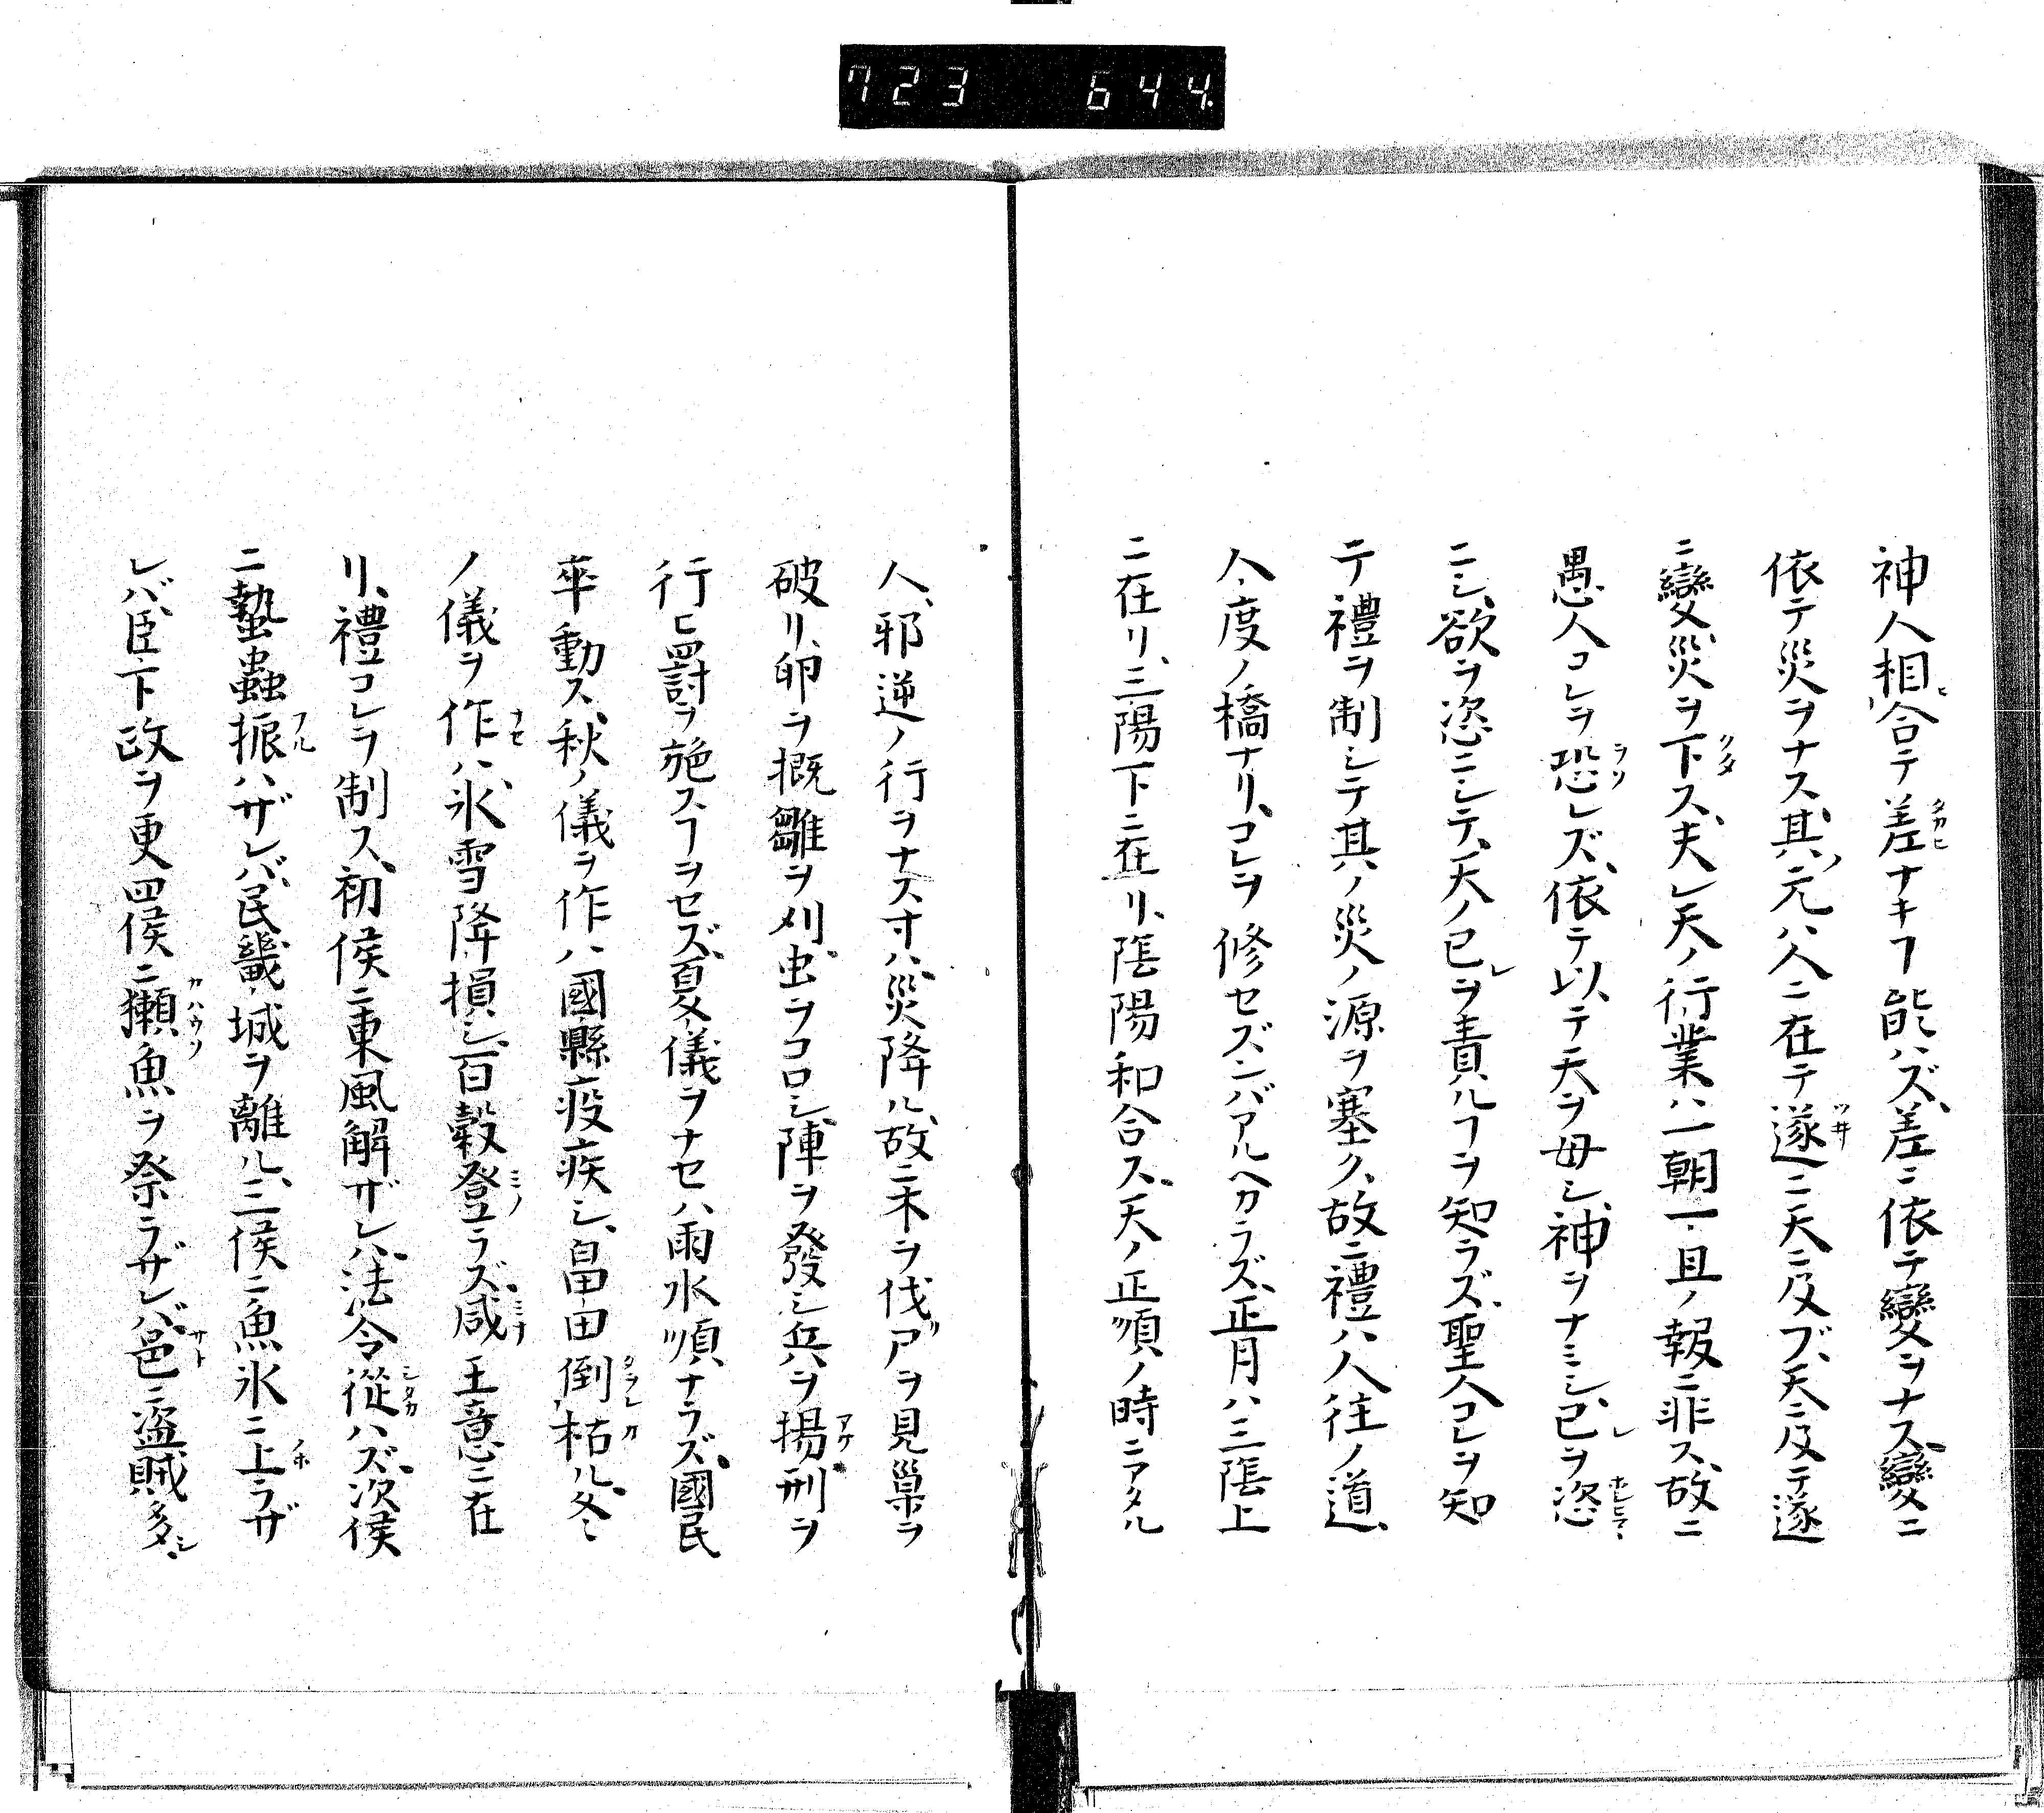 723 644
神人相合テ差ナキヿ能ハズ、差ニ依テ變ヲナス、變ニ
依テ災ヲナス、其ノ元ハ人ニ在テ遂ニ天ニ及ブ、天ニ及テ遂
ニ變災ヲ下ス、夫レ天ノ行業ハ一朝一旦ノ報ニ非ス、故ニ
愚人コレヲ恐レズ、依テ以テ天ヲ毋シ、神ヲナミシ、己レヲ恣
ニシ、欲ヲ恣ニシテ、天ノ己レヲ責ルヿヲ知ラズ、聖人コレヲ知
テ禮ヲ制シテ其ノ災ノ源ヲ塞ク、故ニ禮ハ人往ノ道、
人度ノ橋ナリ、コレヲ修セズンバアルヘカラズ、正月ハ三陰上
ニ在リ、三陽下ニ在リ、陰陽和合ス、天ノ正順ノ時ニアタル
人、邪逆ノ行ヲナス寸ハ災降ル、故ニ木ヲ伐ヿヲ見巣ヲ
破リ、卵ヲ概雛ヲ刈、虫ヲコロシ、陣ヲ發シ兵ヲ揚刑ヲ
行ヒ罸ヲ施スヿヲセズ、夏儀ヲナセハ雨水順ナラズ、國民
卒動ス、秋ノ儀ヲ作ハ國縣疫疾シ、畠田倒枯ル、冬
ノ儀ヲ作ハ、氷雪降損シ、百穀登ラズ、咸王意ニ在
リ、禮コレヲ制ス、初侯ニ東風解ザレハ、法令從ハズ、次侯
ニ蟄蟲振ハザレバ、民畿城ヲ離ル、三侯ニ魚氷ニ上ラザ
レバ、臣下政ヲ更四侯ニ獺魚ヲ祭ラザレバ、邑ニ盗賊多シ、